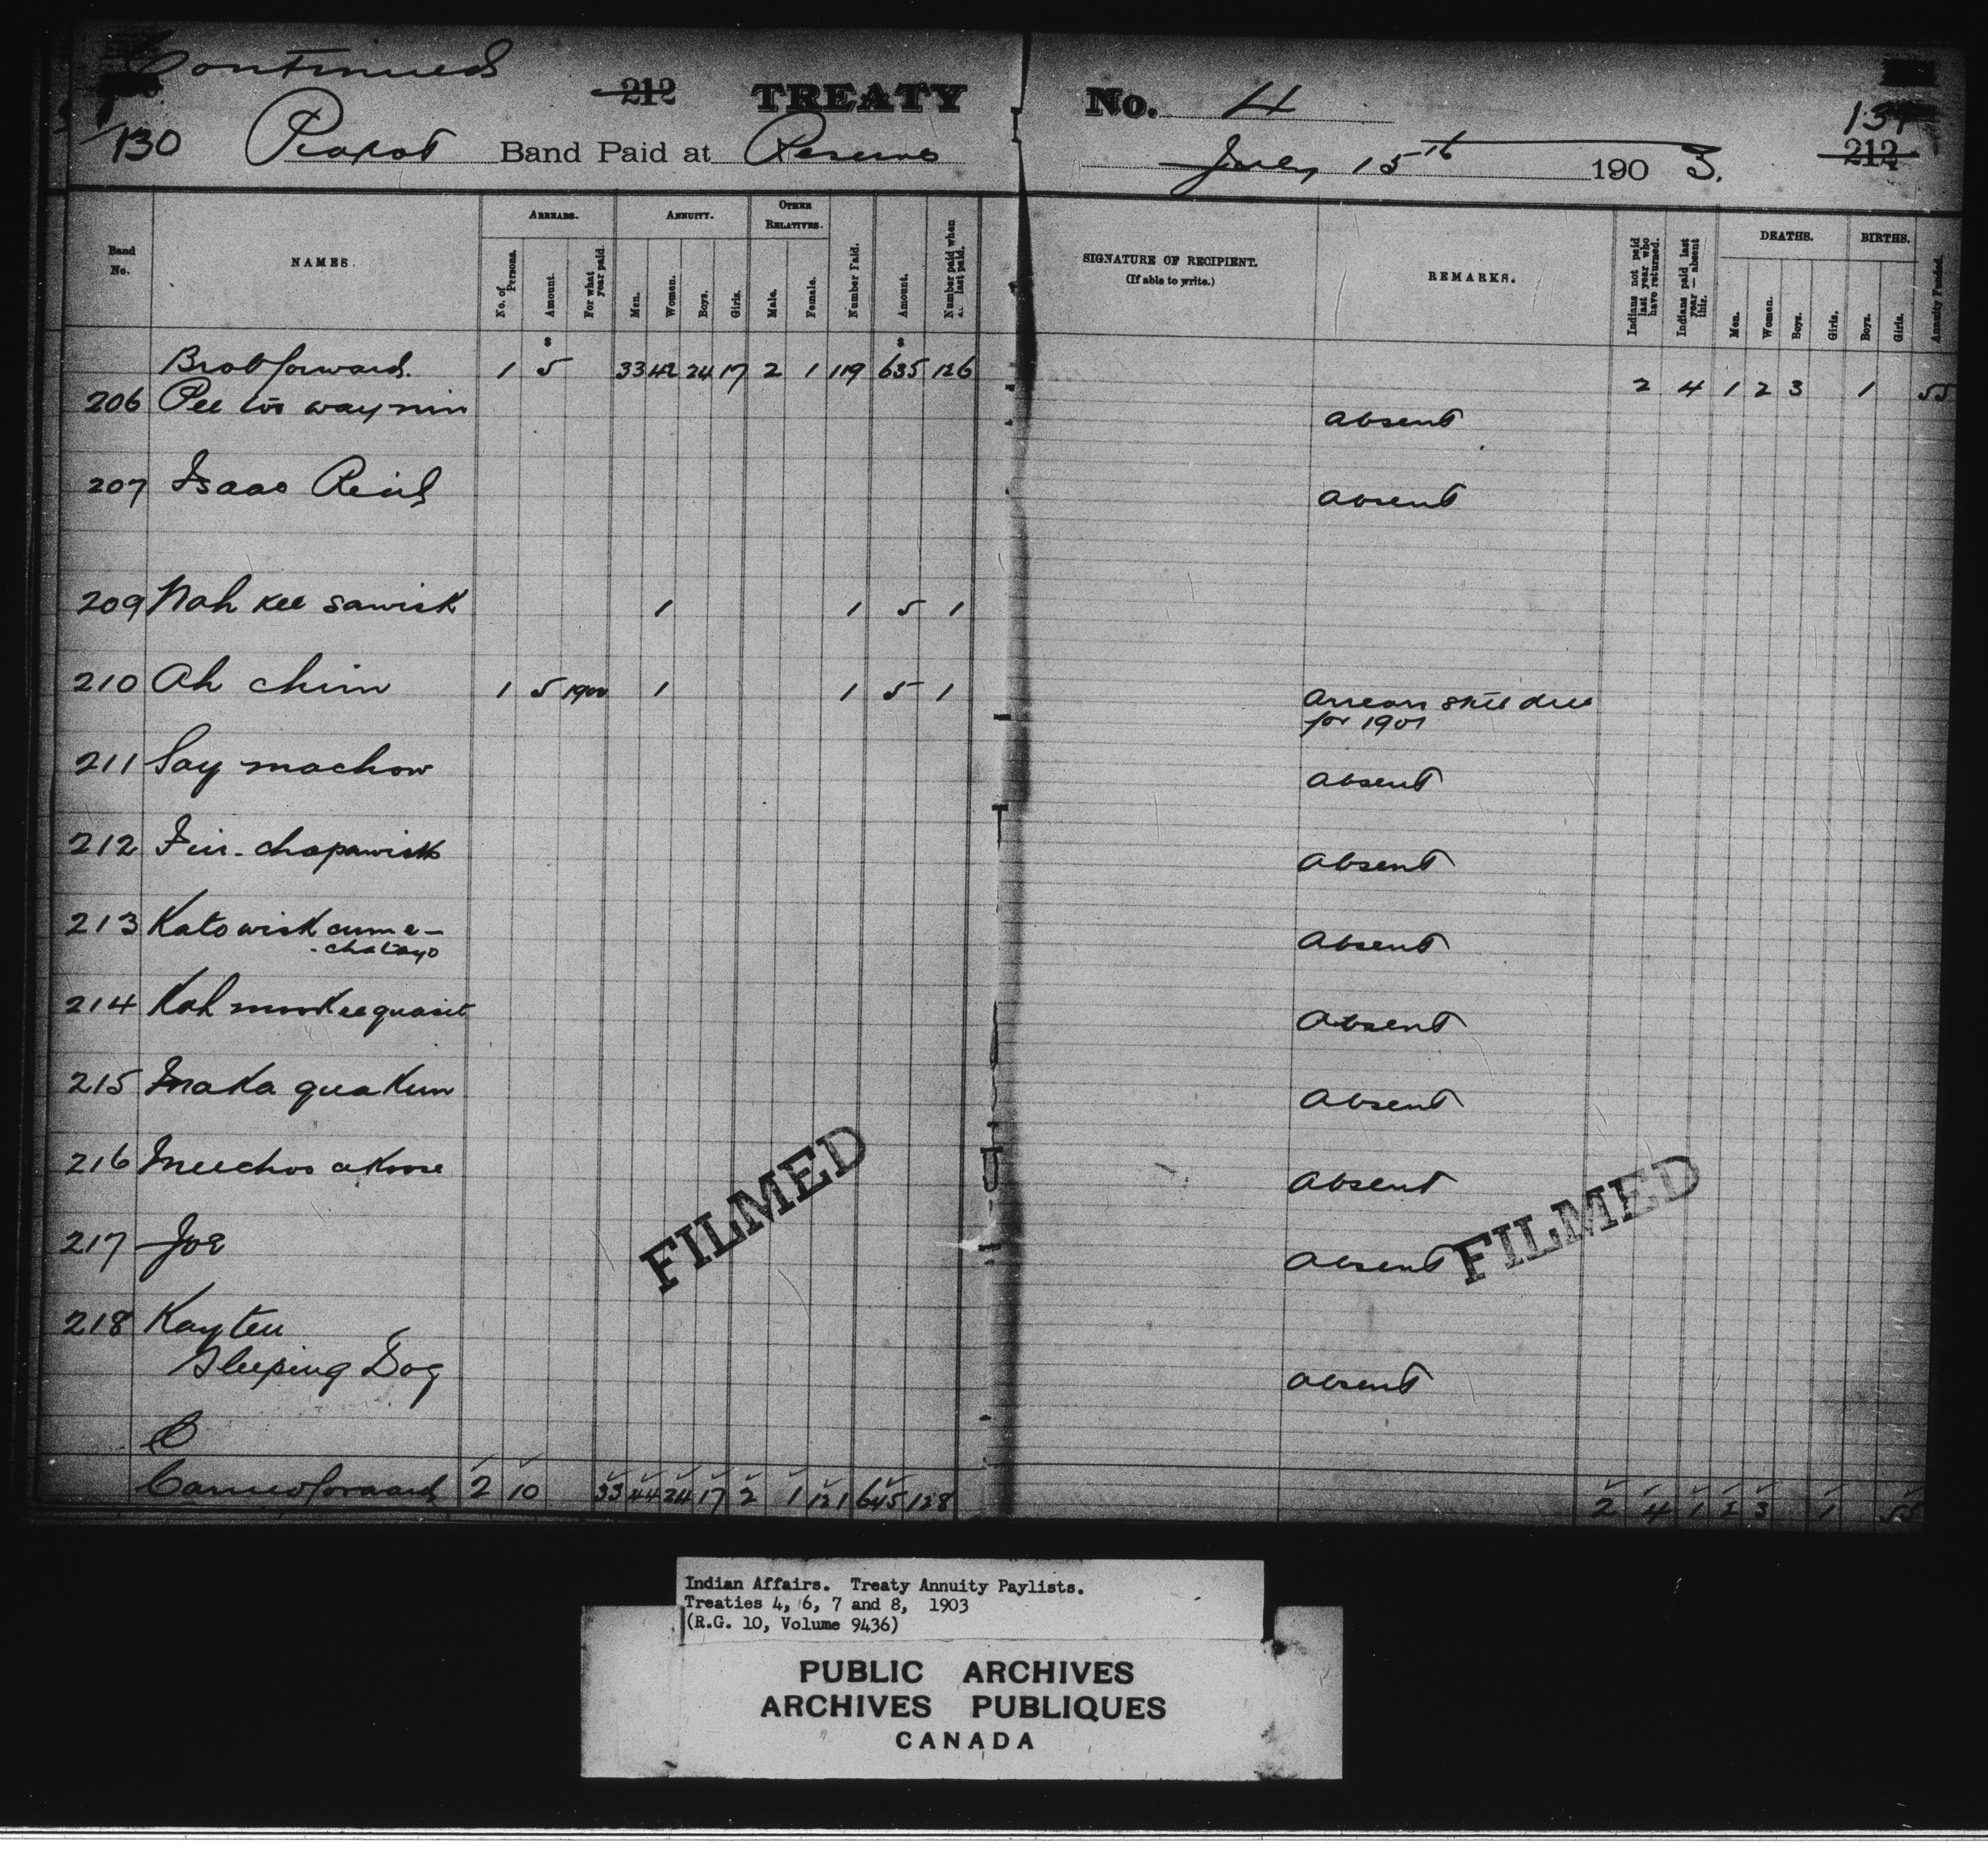 Continued
212 TREATY No. 4
130 Piapot Band Paid at Reserve July 15th 1903. 131
212
Band No.
NAMES.
ARREARS.
No. of Persons.
Amount.
For what year paid.
ANNUITY.
Men.
Women.
Boys.
Girls.
OTHER RELATIVES.
Male.
Female.
Number Paid.
Amount.
Number paid when last paid.
SIGNATURE OF RECIPIENT.
(If able to write.)
REMARKS.
Indians not paid last year who have returned.
Indians paid last year—absent this.
DEATHS.
Men.
Women.
Boys.
Girls.
BIRTHS.
Boys.
Girls.
Annuity Funded.
$ $
Brot forward. 1 5 33 42 24 17 2 1 119 635 126 2 4 1 2 3 1 55
206 Pee too way nin absent
207 Isaac Reid absent
209 Nah kee sawisk 1 1 5 1
210 Ah chim 1 5 1900 1 1 5 1 Arrears still due
for 1901
211 Say machow absent
212 chapawisk absent
213 Katowisk cume-
-chatayo absent
214 Kah mookeequasit absent
215 Maka quakun absent
216 Meechoo akoose absent
217 Joe absent
218 Kayten
Sleeping Dog absent
Carried forward 2 10 33 44 24 17 2 1 121 645 128 2 4 1 2 3 1 55
FILMED
FILMED
Indian Affairs. Treaty Annuity Paylists.
Treaties 4, 6, 7 and 8, 1903
(R.G. 10, Volume 9436)
PUBLIC ARCHIVES
ARCHIVES PUBLIQUES
CANADA